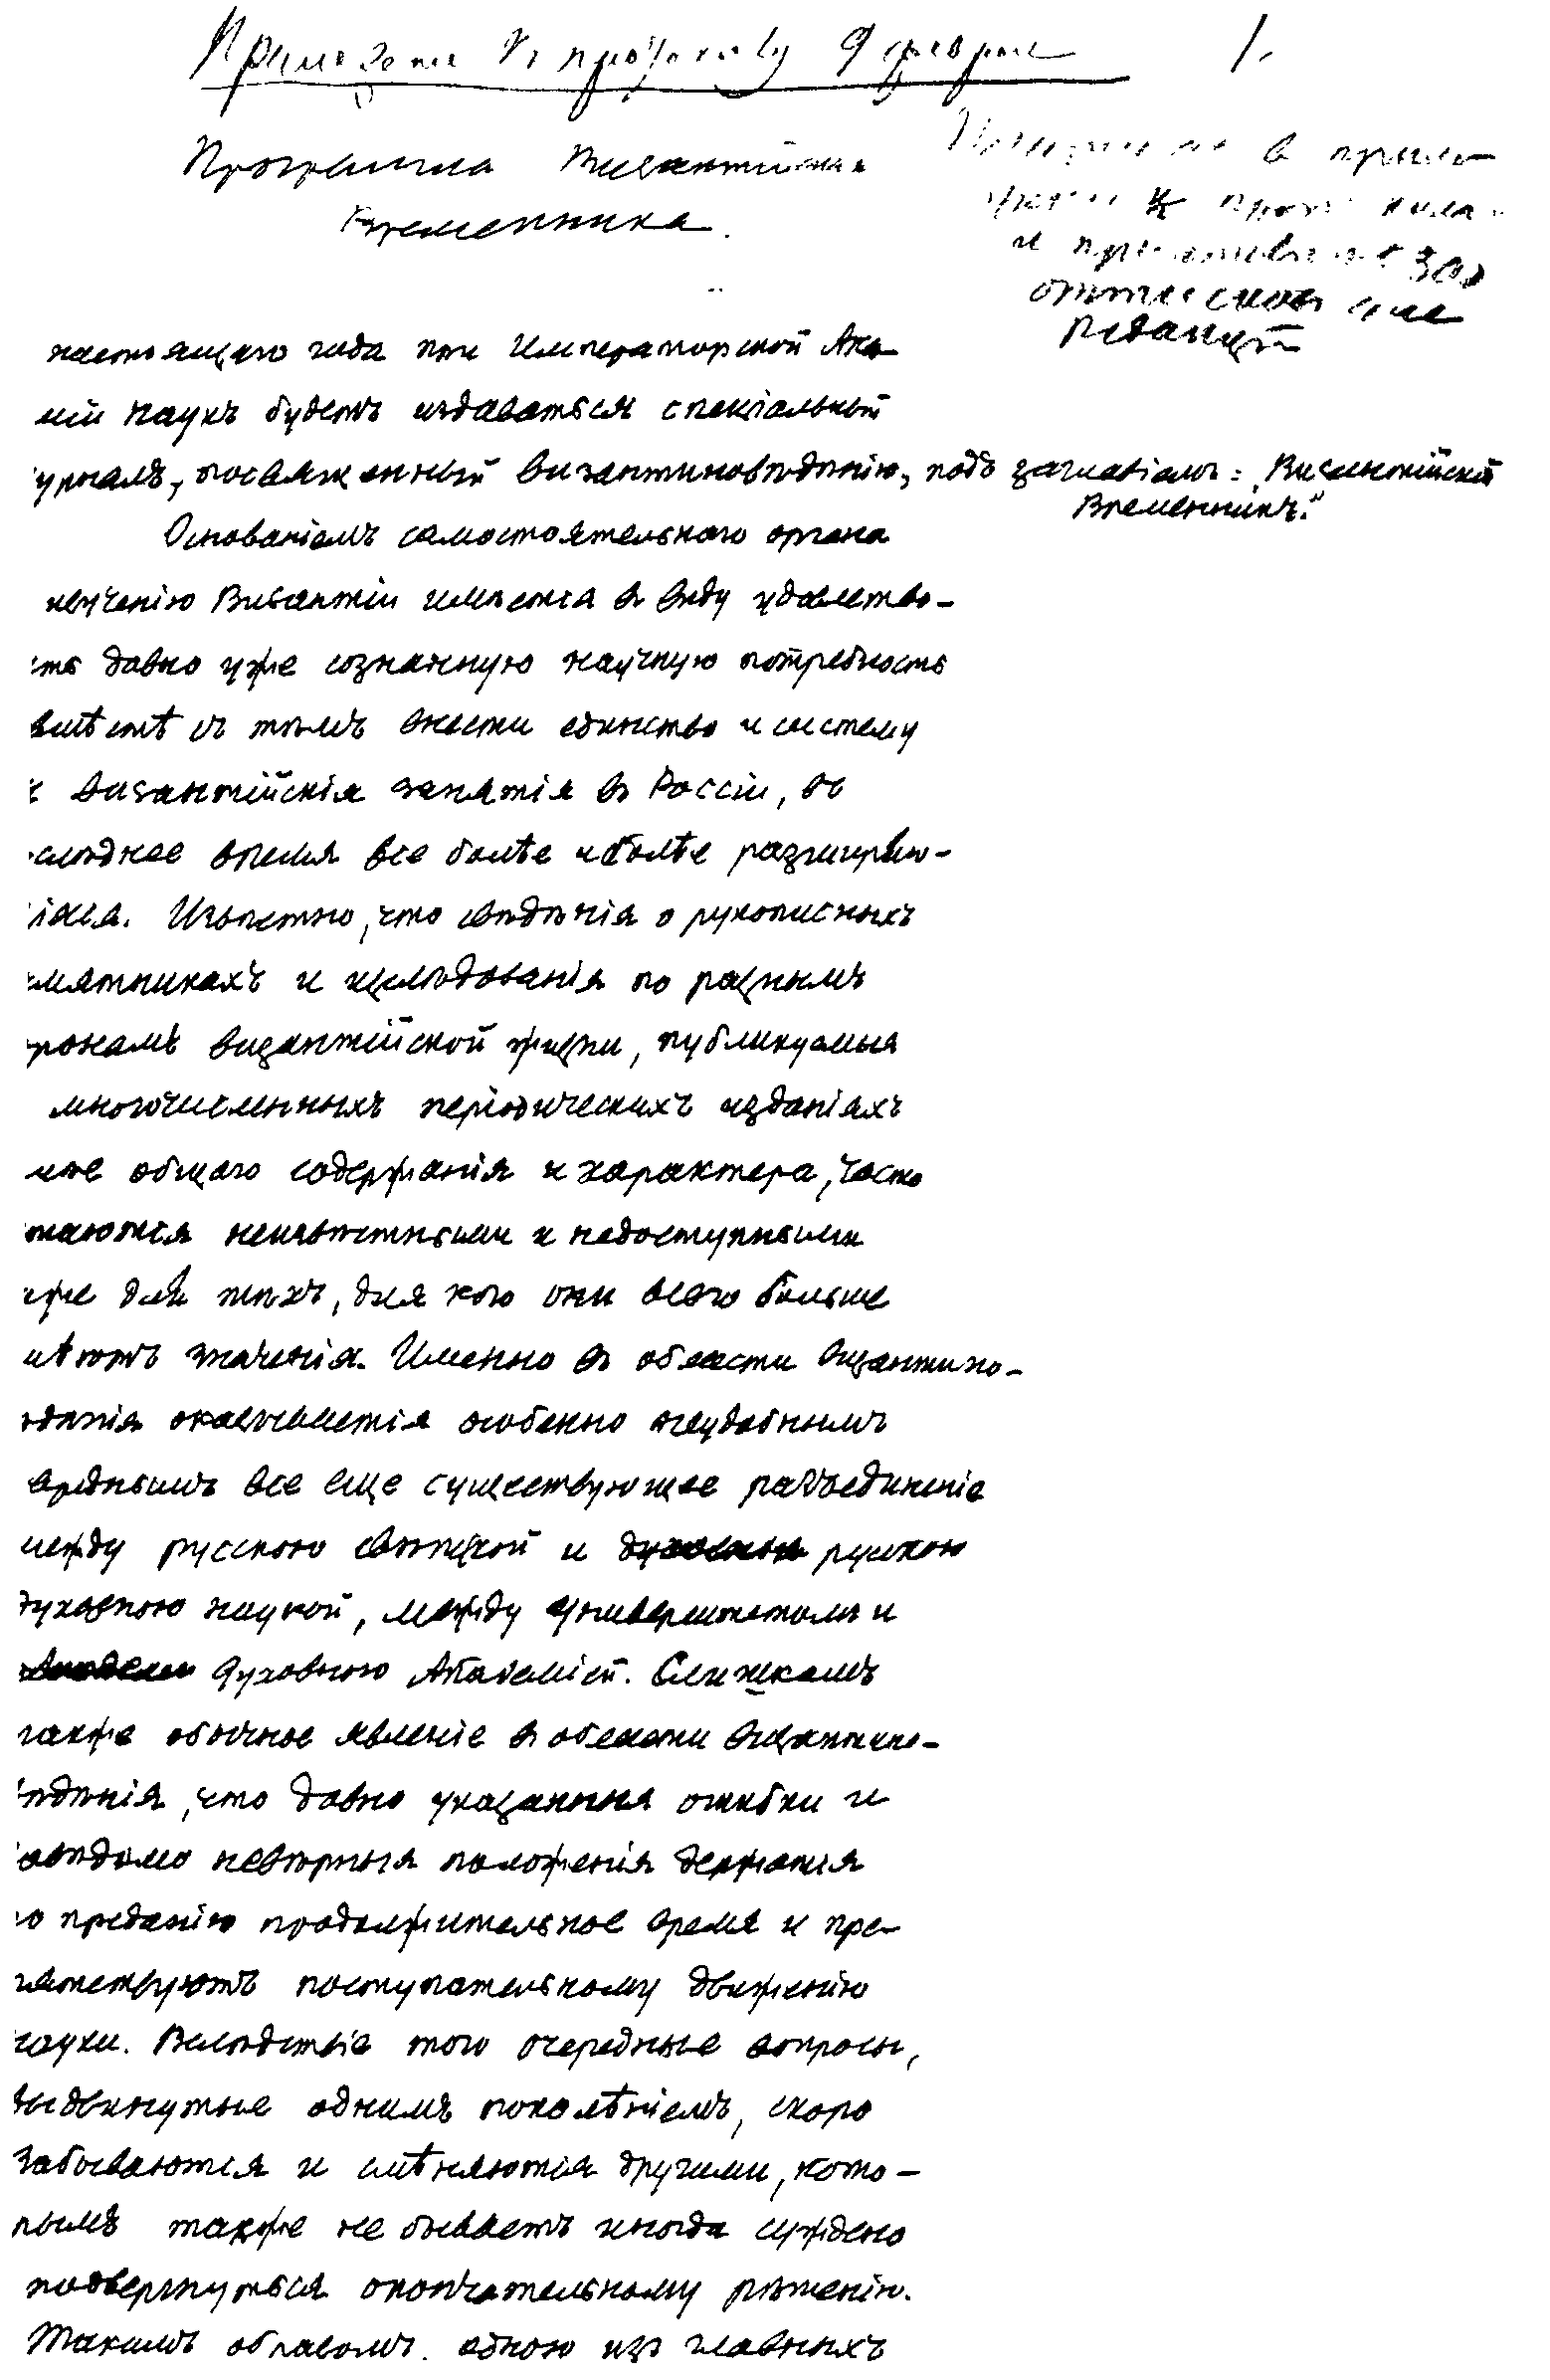 Приложение къ протоколу 9 февраля 1.
Программа Византійскаго
Временника.
в прило
к прото
и
оттисков для
редакцій
настоящаго года при Императорской Ака
міи Наукъ будетъ издаваться спеціальный
урналъ, посвященный византиновѣдѣнію, подъ заглавіемъ: „Византійскій
Временникъ."
Основаніемъ самостоятельнаго органа
изученію Византіи имѣется въ виду удовлетво-
ть давно уже сознанную научную потребность
вмѣстѣ съ тѣмъ внести единство и систему
византійскія занятія въ Россіи, въ
слѣднее время все болѣе и болѣе расширяю-
іяся. Извѣстно, что свѣдѣнія о рукописныхъ
мятникахъ и изслѣдованія по разнымъ
ронамъ византійской жизни, публикуемыя
многочисленныхъ періодическихъ изданіяхъ
лѣе общаго содержанія и характера, часто
таются неизвѣстными и недоступными
же для тѣхъ, для кого они всего больше
мѣютъ значенія. Именно въ области византино-
ѣдѣнія оказывается особенно неудобнымъ
вреднымъ все еще существующее разъединеніе
между русскою свѣтской и русскою
духовною наукой, между университетомъ и
духовною Академіей. Слишкомъ
также обычное явленіе въ области византино-
вѣдѣнія, что давно указанныя ошибки и
авѣдомо невѣрныя положенія держатся
по преданію продолжительное время и пре-
пятствуютъ поступательному движенію
науки. Вслѣдствіе того очередные вопросы,
выдвинутые однимъ поколѣніемъ, скоро
забываются и смѣняются другими, кото-
рымъ также не бываетъ иногда суждено
подвергнуться окончательному рѣшенію.
Такимъ образомъ, одною изъ главныхъ